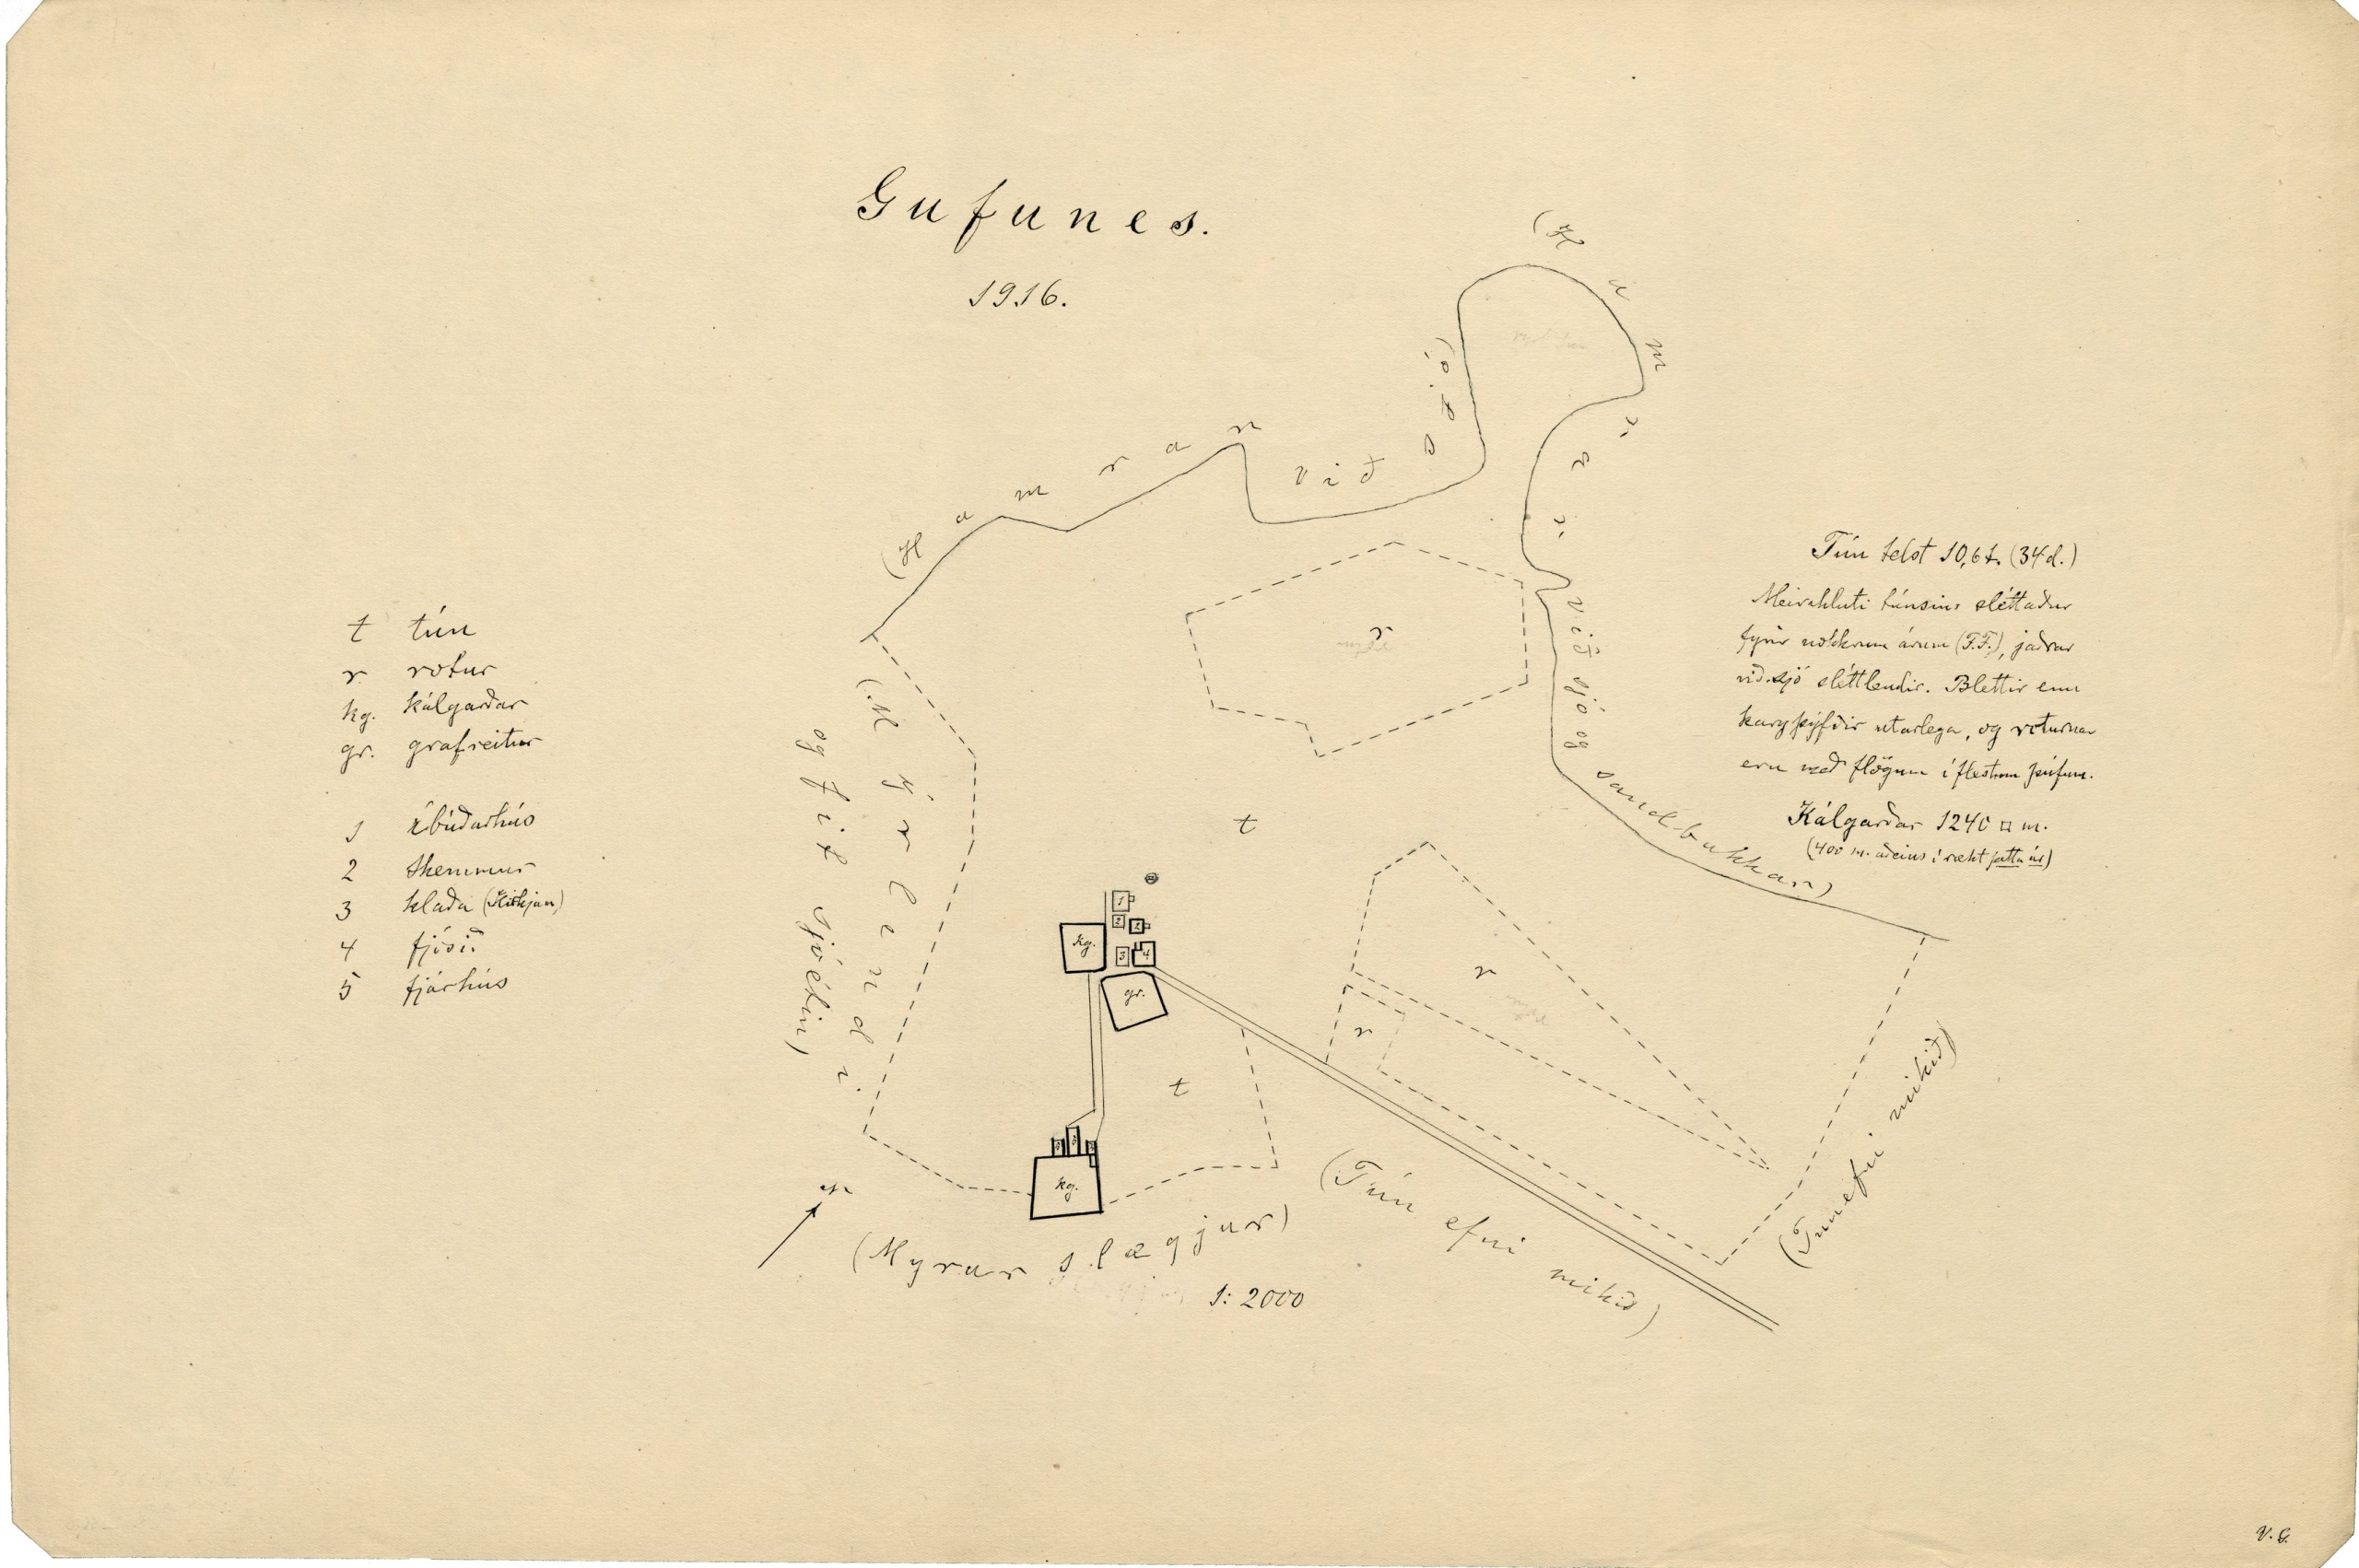 Gufunes.
1916.
(Hamrar við sjó)
(Hamrar við sjó og sandbakkar)
t tún
r rotur
kg. kálgarðar
gr. grafreitur
1 íbúðarhús
2 skemmur
3 hlaða (Kirkjan)
4 fjósið
5 fjárhús
Tún telst 10,6 t. (34 d.)
Meirihluti túnsins sléttaður
fyrir nokkrum árum (F.F.), jaðrar
við sjó sléttlendir. Blettir enn
kargþýfðir utarlega, og roturnar
eru með flögum í flestum þúfum.
Kálgarðar 1240 □ m.
(400 m. aðeins í rækt þetta ár)
(Mýrlendi
og fit sjóétin)
r
t
1
2
2
kg.
3
4
gr.
r
r
t
kg.
N
(Mýrar slægjur)
(Tún efni mikið)
(Túnefni mikið)
1:2000
V.G.